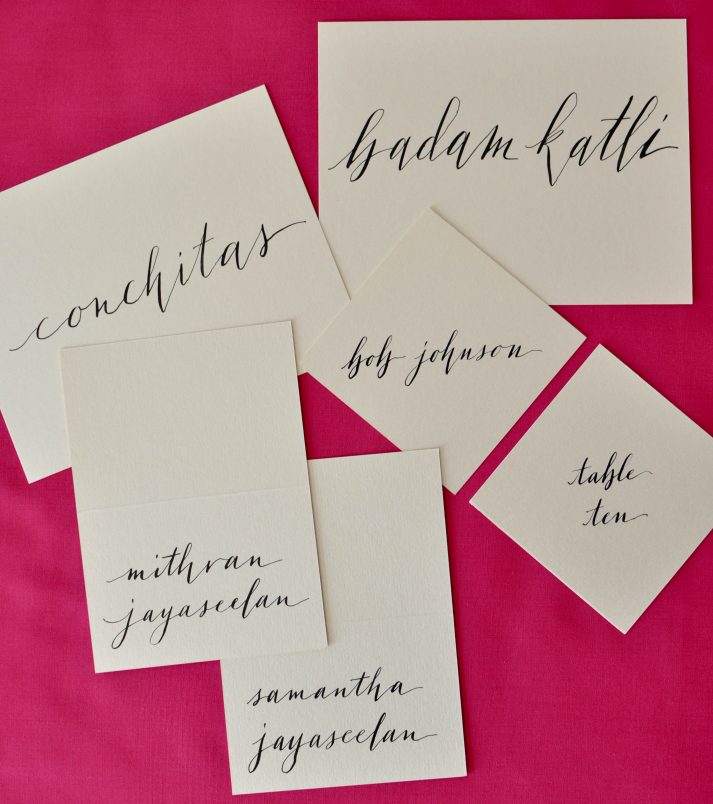 badam katli
conchitas
bob johnson
table
ten
mithran
jayaseelan
samantha
jayaseelan